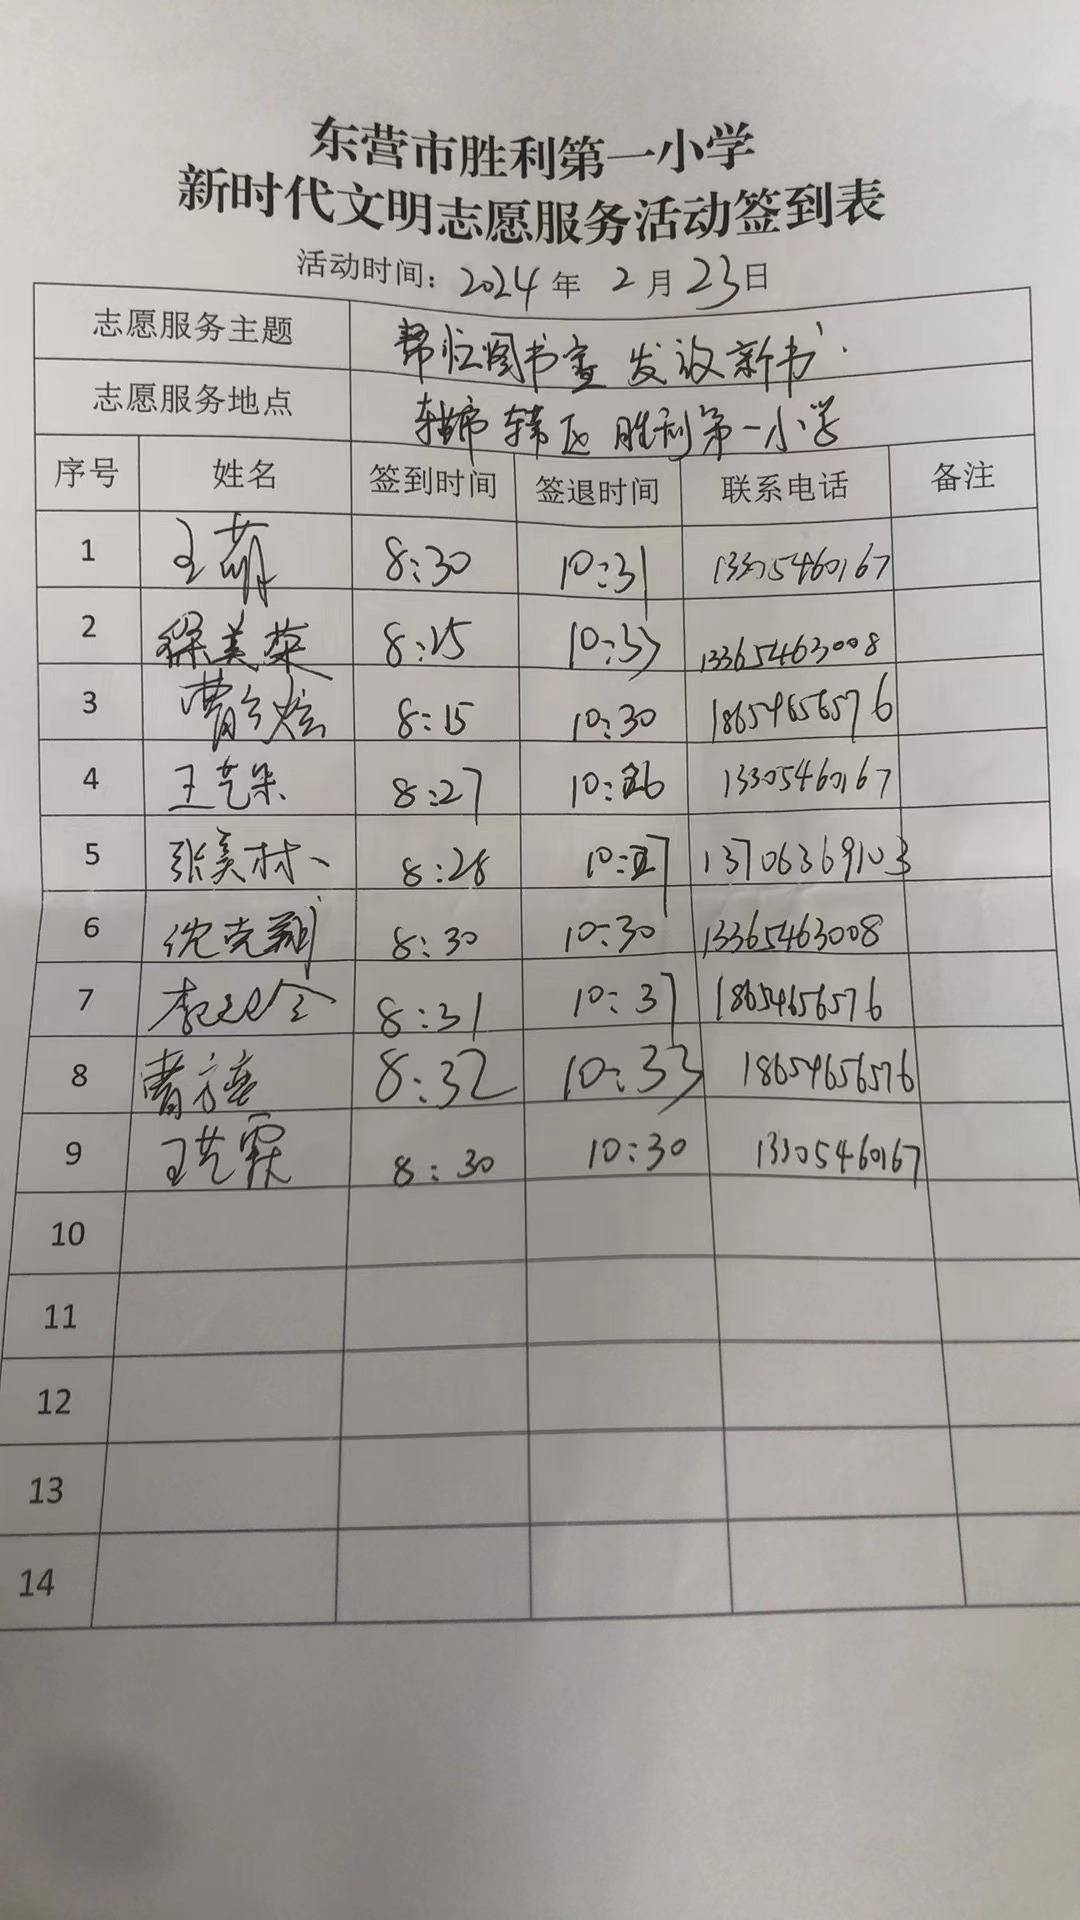 东营市胜利第一小学
新时代文明志愿服务活动签到表
活动时间：2024年 2月23日
志愿服务主题 帮忙图书室 发放新书
志愿服务地点 东营市 东营区 胜利第一小学
序号 姓名 签到时间 签退时间 联系电话 备注
1 王萌 8:30 10:31 13305460167
2 徐美荣 8:15 10:33 13365463008
3 曹 8:15 10:30 18654656576
4 王艺朵 8:27 10: 13305460167
5 张美村 8:28 10: 13706369103
6 倪克翔 8:30 10:30 13365463008
7 8:31 10:37 18654656576
8 曹 8:32 10:33 18654656576
9 王艺霖 8:30 10:30 13305460167
10
11
12
13
14